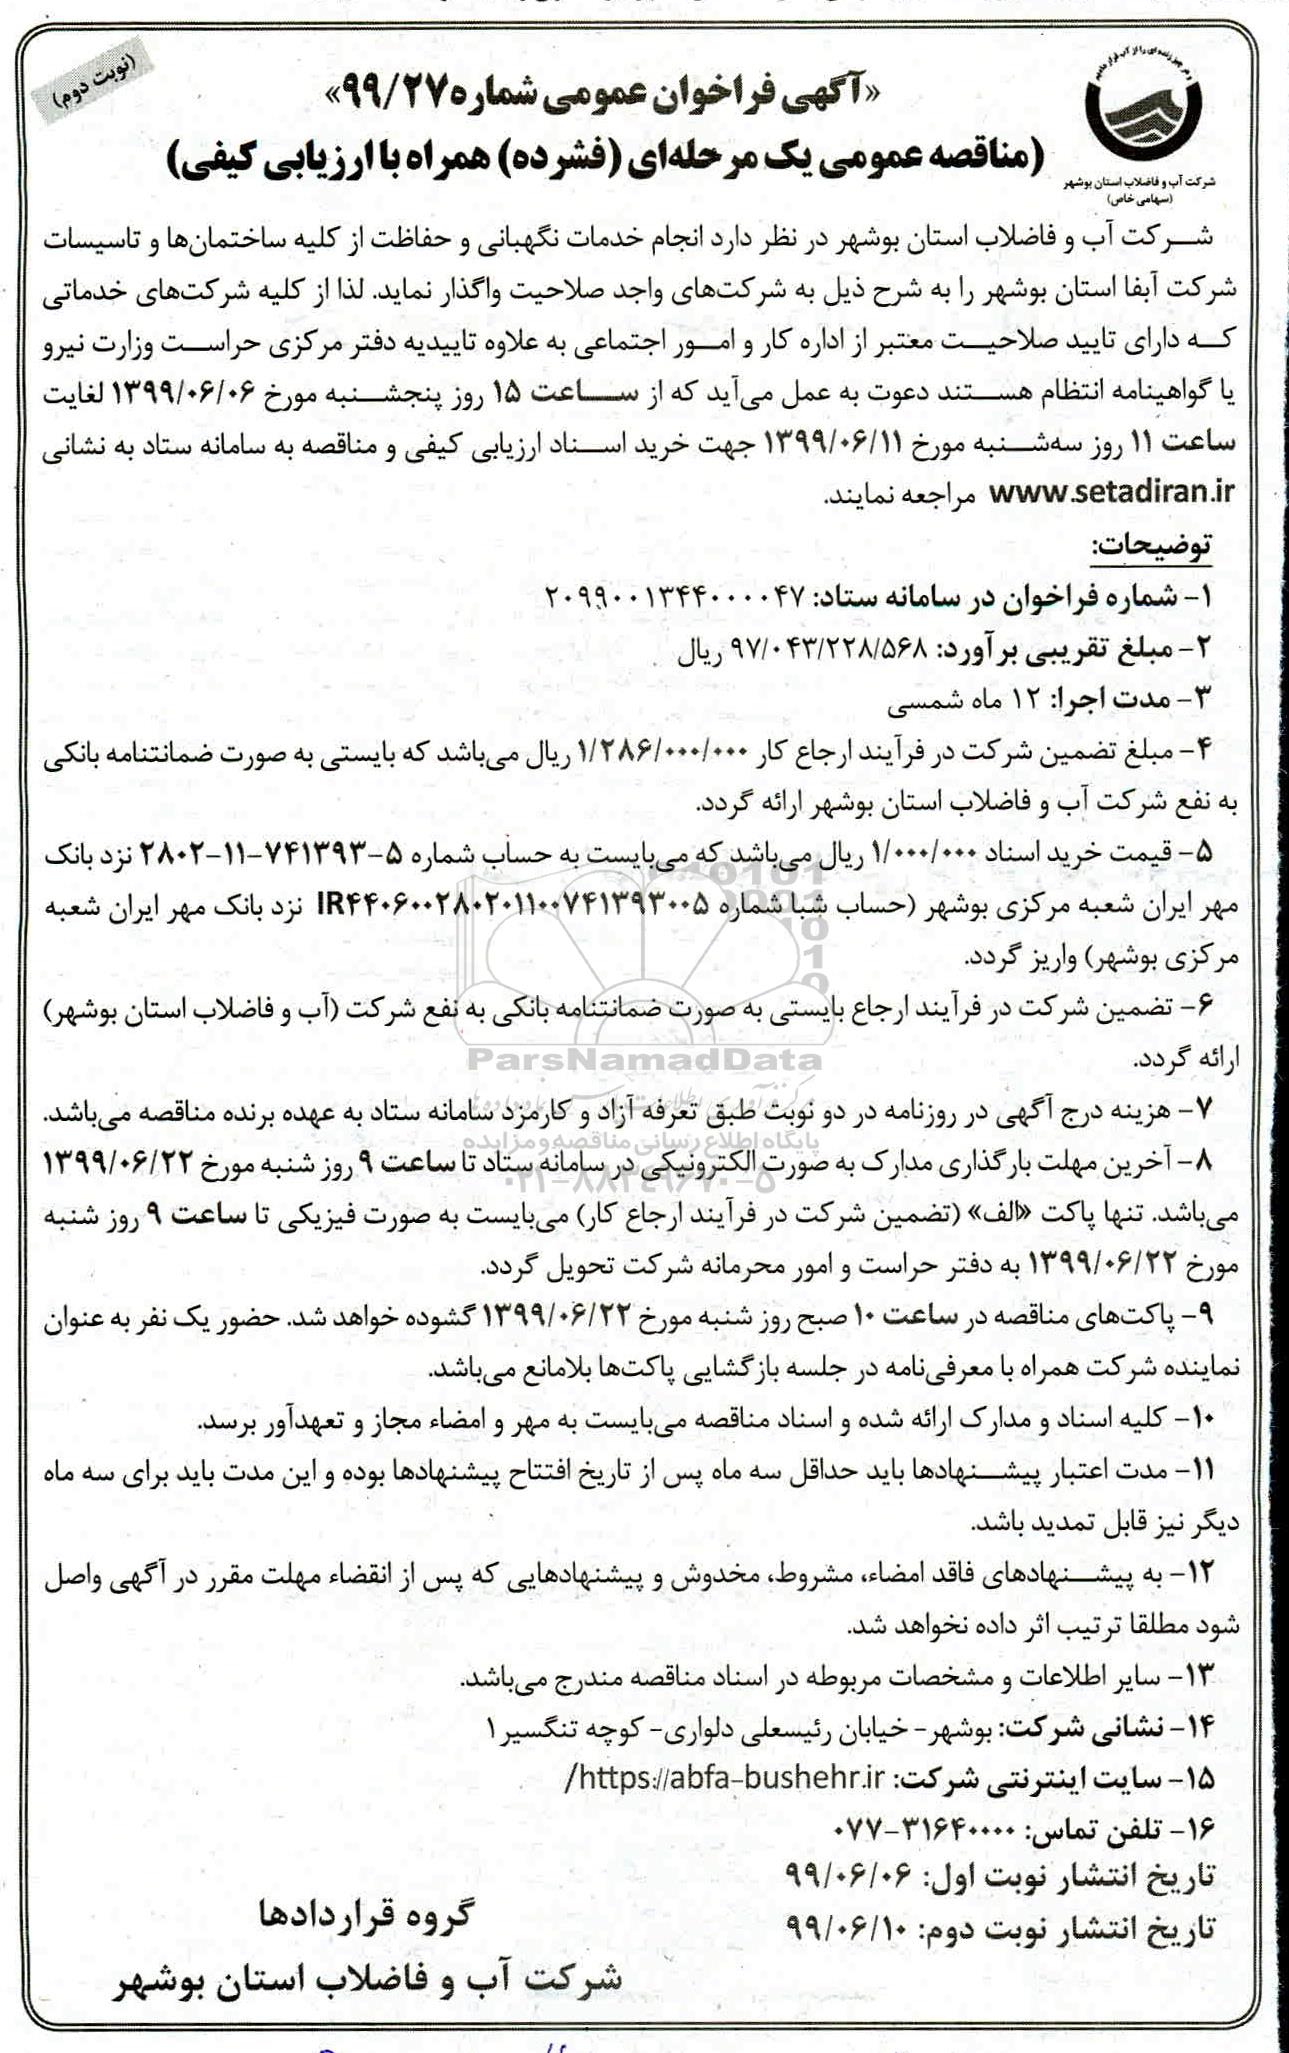 (نوبت دوم)
«آگهی فراخوان عمومی شماره ۹۹/۲۷»
(مناقصه عمومی یک مرحله‌ای (فشرده) همراه با ارزیابی کیفی)
شرکت آب و فاضلاب استان بوشهر
(سهامی خاص)
شرکت آب و فاضلاب استان بوشهر در نظر دارد انجام خدمات نگهبانی و حفاظت از کلیه ساختمان‌ها و تاسیسات
شرکت آبفا استان بوشهر را به شرح ذیل به شرکت‌های واجد صلاحیت واگذار نماید. لذا از کلیه شرکت‌های خدماتی
که دارای تایید صلاحیت معتبر از اداره کار و امور اجتماعی به علاوه تاییدیه دفتر مرکزی حراست وزارت نیرو
یا گواهینامه انتظام هستند دعوت به عمل می‌آید که از ساعت ۱۵ روز پنجشنبه مورخ ۱۳۹۹/۰۶/۰۶ لغایت
ساعت ۱۱ روز سه‌شنبه مورخ ۱۳۹۹/۰۶/۱۱ جهت خرید اسناد ارزیابی کیفی و مناقصه به سامانه ستاد به نشانی
www.setadiran.ir مراجعه نمایند.
توضیحات:
۱- شماره فراخوان در سامانه ستاد: ۲۰۹۹۰۰۱۳۴۴۰۰۰۰۴۷
۲- مبلغ تقریبی برآورد: ۹۷/۰۴۳/۲۲۸/۵۶۸ ریال
۳- مدت اجرا: ۱۲ ماه شمسی
۴- مبلغ تضمین شرکت در فرآیند ارجاع کار ۱/۲۸۶/۰۰۰/۰۰۰ ریال می‌باشد که بایستی به صورت ضمانتنامه بانکی
به نفع شرکت آب و فاضلاب استان بوشهر ارائه گردد.
۵- قیمت خرید اسناد ۱/۰۰۰/۰۰۰ ریال می‌باشد که می‌بایست به حساب شماره ۵-۷۴۱۳۹۳-۱۱-۲۸۰۲ نزد بانک
مهر ایران شعبه مرکزی بوشهر (حساب شبا شماره IR۴۴۰۶۰۰۲۸۰۲۰۱۱۰۰۷۴۱۳۹۳۰۰۵ نزد بانک مهر ایران شعبه
مرکزی بوشهر) واریز گردد.
۶- تضمین شرکت در فرآیند ارجاع بایستی به صورت ضمانتنامه بانکی به نفع شرکت (آب و فاضلاب استان بوشهر)
ارائه گردد.
ParsNamadData
۷- هزینه درج آگهی در روزنامه در دو نوبت طبق تعرفه آزاد و کارمزد سامانه ستاد به عهده برنده مناقصه می‌باشد.
پایگاه اطلاع رسانی مناقصه و مزایده
۸- آخرین مهلت بارگذاری مدارک به صورت الکترونیکی در سامانه ستاد تا ساعت ۹ روز شنبه مورخ ۱۳۹۹/۰۶/۲۲
۰۲۱-۸۸۳۴۹۶۷۰-۵
می‌باشد. تنها پاکت «الف» (تضمین شرکت در فرآیند ارجاع کار) می‌بایست به صورت فیزیکی تا ساعت ۹ روز شنبه
مورخ ۱۳۹۹/۰۶/۲۲ به دفتر حراست و امور محرمانه شرکت تحویل گردد.
۹- پاکت‌های مناقصه در ساعت ۱۰ صبح روز شنبه مورخ ۱۳۹۹/۰۶/۲۲ گشوده خواهد شد. حضور یک نفر به عنوان
نماینده شرکت همراه با معرفی‌نامه در جلسه بازگشایی پاکت‌ها بلامانع می‌باشد.
۱۰- کلیه اسناد و مدارک ارائه شده و اسناد مناقصه می‌بایست به مهر و امضاء مجاز و تعهدآور برسد.
۱۱- مدت اعتبار پیشنهادها باید حداقل سه ماه پس از تاریخ افتتاح پیشنهادها بوده و این مدت باید برای سه ماه
دیگر نیز قابل تمدید باشد.
۱۲- به پیشنهادهای فاقد امضاء، مشروط، مخدوش و پیشنهادهایی که پس از انقضاء مهلت مقرر در آگهی واصل
شود مطلقا ترتیب اثر داده نخواهد شد.
۱۳- سایر اطلاعات و مشخصات مربوطه در اسناد مناقصه مندرج می‌باشد.
۱۴- نشانی شرکت: بوشهر- خیابان رئیسعلی دلواری- کوچه تنگسیر۱
۱۵- سایت اینترنتی شرکت: https://abfa-bushehr.ir/
۱۶- تلفن تماس: ۳۱۶۴۰۰۰۰-۰۷۷
تاریخ انتشار نوبت اول: ۹۹/۰۶/۰۶
تاریخ انتشار نوبت دوم: ۹۹/۰۶/۱۰
گروه قراردادها
شرکت آب و فاضلاب استان بوشهر